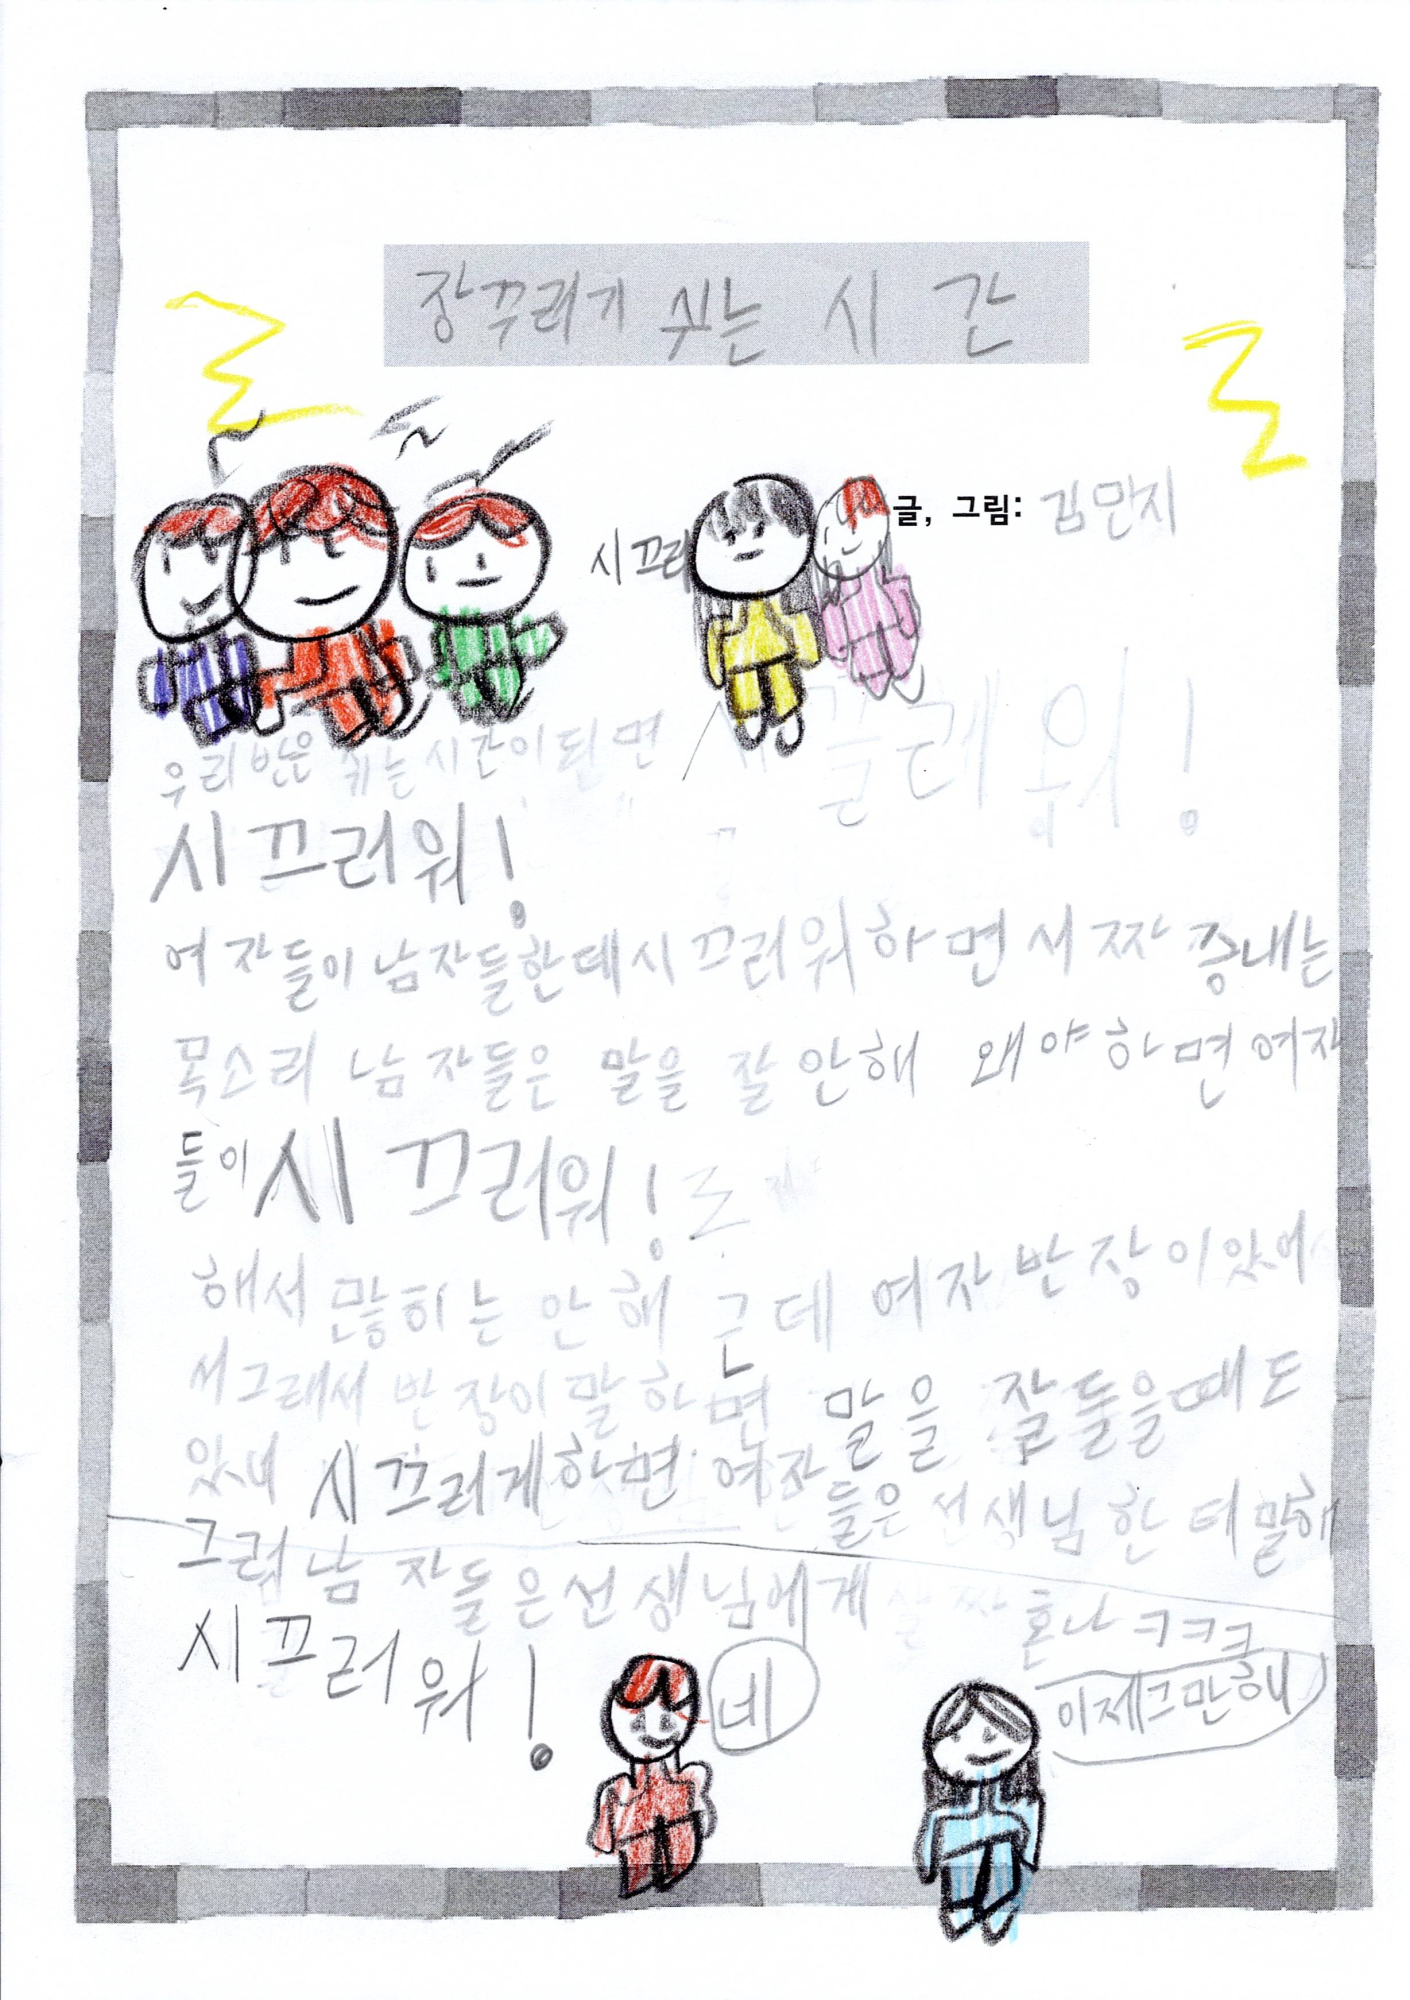 장꾸러기 쉬는 시간
글, 그림: 김민지
시끄러
우리반은 쉬는시간이 되면
시끄러워!
여자들이 남자들한데 시끄러워하면서 짜증내는
목소리 남자들은 말을 잘 안해 왜야하면 여자
들이 시끄러워!
해서 많히는 안해 근데 여자반장이 있어
서 그래서 반장이 말하면 말을 잘 들을때도
있서 시끄러게하면 여자들은 선생님한테 말해
그럼 남자들은 선생님에게 혼나 ㅋㅋㅋ
시끄러워!
네
이제그만해